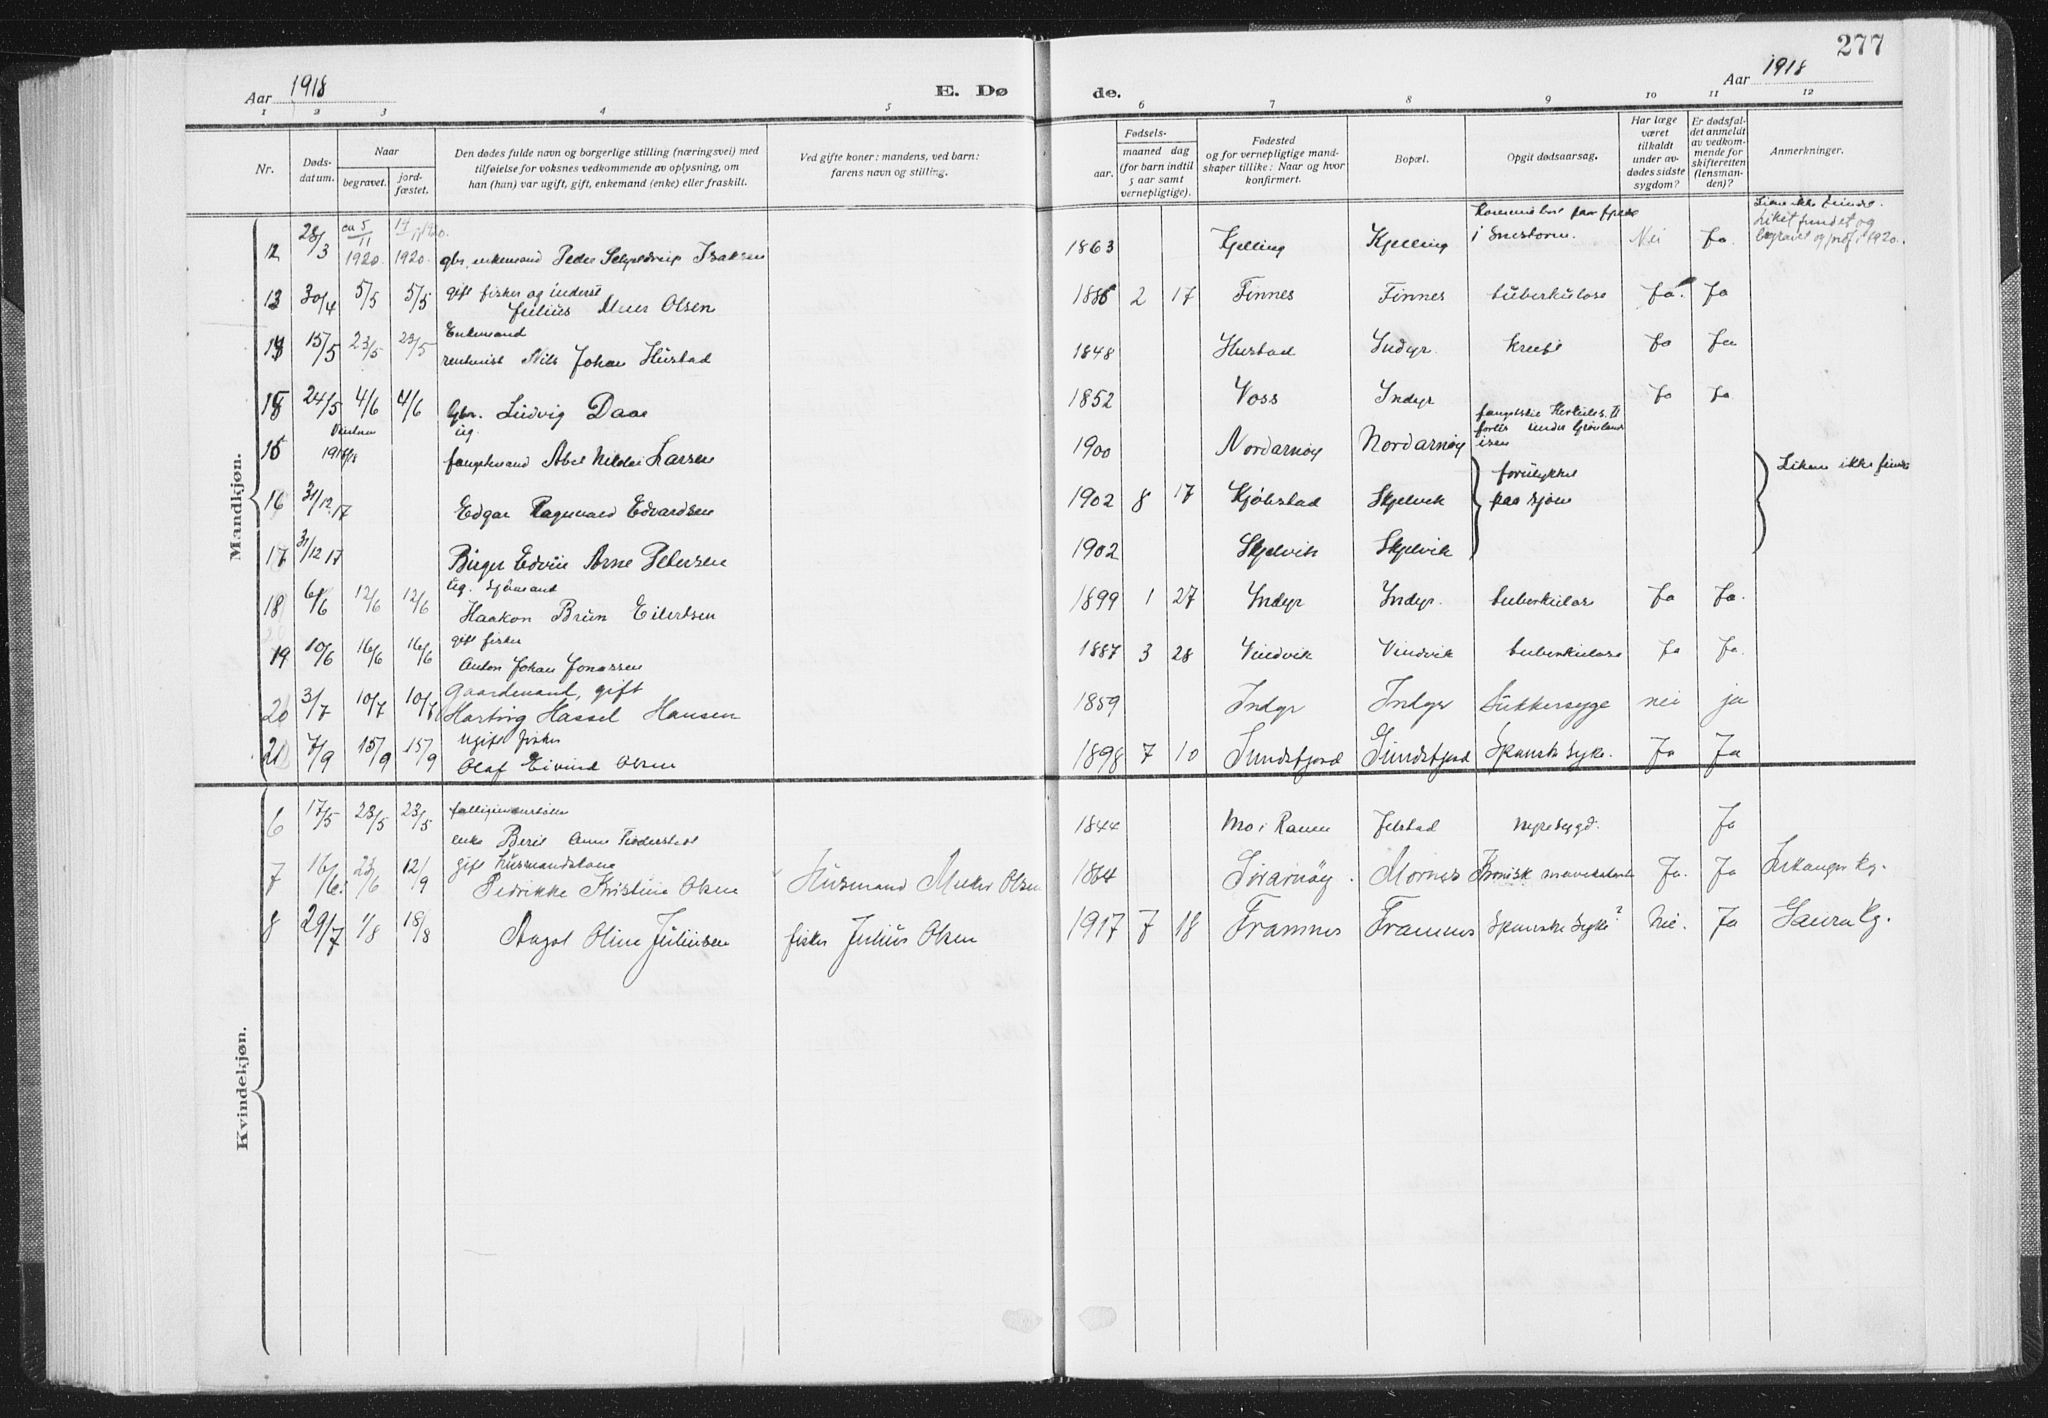 277
Aar 1918
E. Dø
de.
Aar 1918
1 2 3 4 5 6 7 8 9 10 11 12
Nr.
Døds-
datum.
Naar
begravet.
jord-
fæstet.
Den dødes fulde navn og borgerlige stilling (næringsvei) med
tilføielse for voksnes vedkommende av oplysning, om
han (hun) var ugift, gift, enkemand (enke) eller fraskilt.
Ved gifte koner: mandens, ved barn:
farens navn og stilling.
Fødsels-
aar.
maaned dag
(for barn indtil
5 aar samt
vernepligtige).
Fødested
og for vernepligtige mand-
skaper tillike: Naar og hvor
konfirmert.
Bopæl.
Opgit dødsaarsag.
Har læge
været
tilkaldt
under av-
dødes sidste
sygdom?
Er dødsfal-
det anmeldt
av vedkom-
mende for
skifteretten
(lensman-
den)?
Anmerkninger.
Mandkjøn.
12 28/3 ca 5/11 1920 1920 gbr. enkemand Peder Isaksen 1863 Kjelling Kjelling i Nei Ja
Liket fundet og
begravet 1920.
gift fisker og inderst
13 30/4 5/5 5/5 Julius Olsen 1885 2 17 Finnes Finnes tuberkulose Ja Ja
Enkemand
14 15/5 23/5 23/5 rentenist Nils Johan Hustad 1848 Hustad Indyr kreft Ja Ja
15 24/5 4/6 4/6 Gbr. Ludvig Daae 1852 Voss Indyr Ja Ja
ug.
15 fangstmand Abel Nikolai Larsen 1900 Nordarnøy Nordarnøy
forlis under Grønlands
isen
16 31/12 17 Edgar Ragnvald Edvardsen 1902 8 17 Kjøbstad Skjelvik forulykket
paa sjøen
17 31/12 17 Birger Edvin Arne Petersen 1902 Skjelvik Skjelvik
ug. Sjømand
18 6/6 12/6 12/6 Haakon Brun Eilertsen 1899 1 27 Indyr Indyr tuberkulose Ja Ja.
gift fisker
19 10/6 16/6 16/6 Anton Johan Jonassen 1887 3 28 Vindvik Vindvik tuberkulose Ja Ja.
Gaardmand, gift
20 3/7 10/7 10/7 Hartvig Hassel Hansen 1859 Indyr Indyr Sukkersyge nei ja
ugift fisker
21 7/9 15/9 15/9 Olaf Eivind Olsen 1898 7 10 Sundsfjord Sundsfjord Spanske syke. Ja Ja
Kvindekjøn.
6 17/5 23/5 23/5 enke Beret Anne 1844 Mo i Ranen Jelstad Ja
gift husmandskone
7 16/6 23/6 12/9 Pedrikke Kristine Olsen Husmand Olsen 1864 Sørarnøy Mornes Kronisk Ja. Ja
8 29/7 1/8 18/8 Aagot Oline Juliussen fisker Julius Olsen 1917 7 18 Framnes Framnes Spanske syke? Nei. Ja